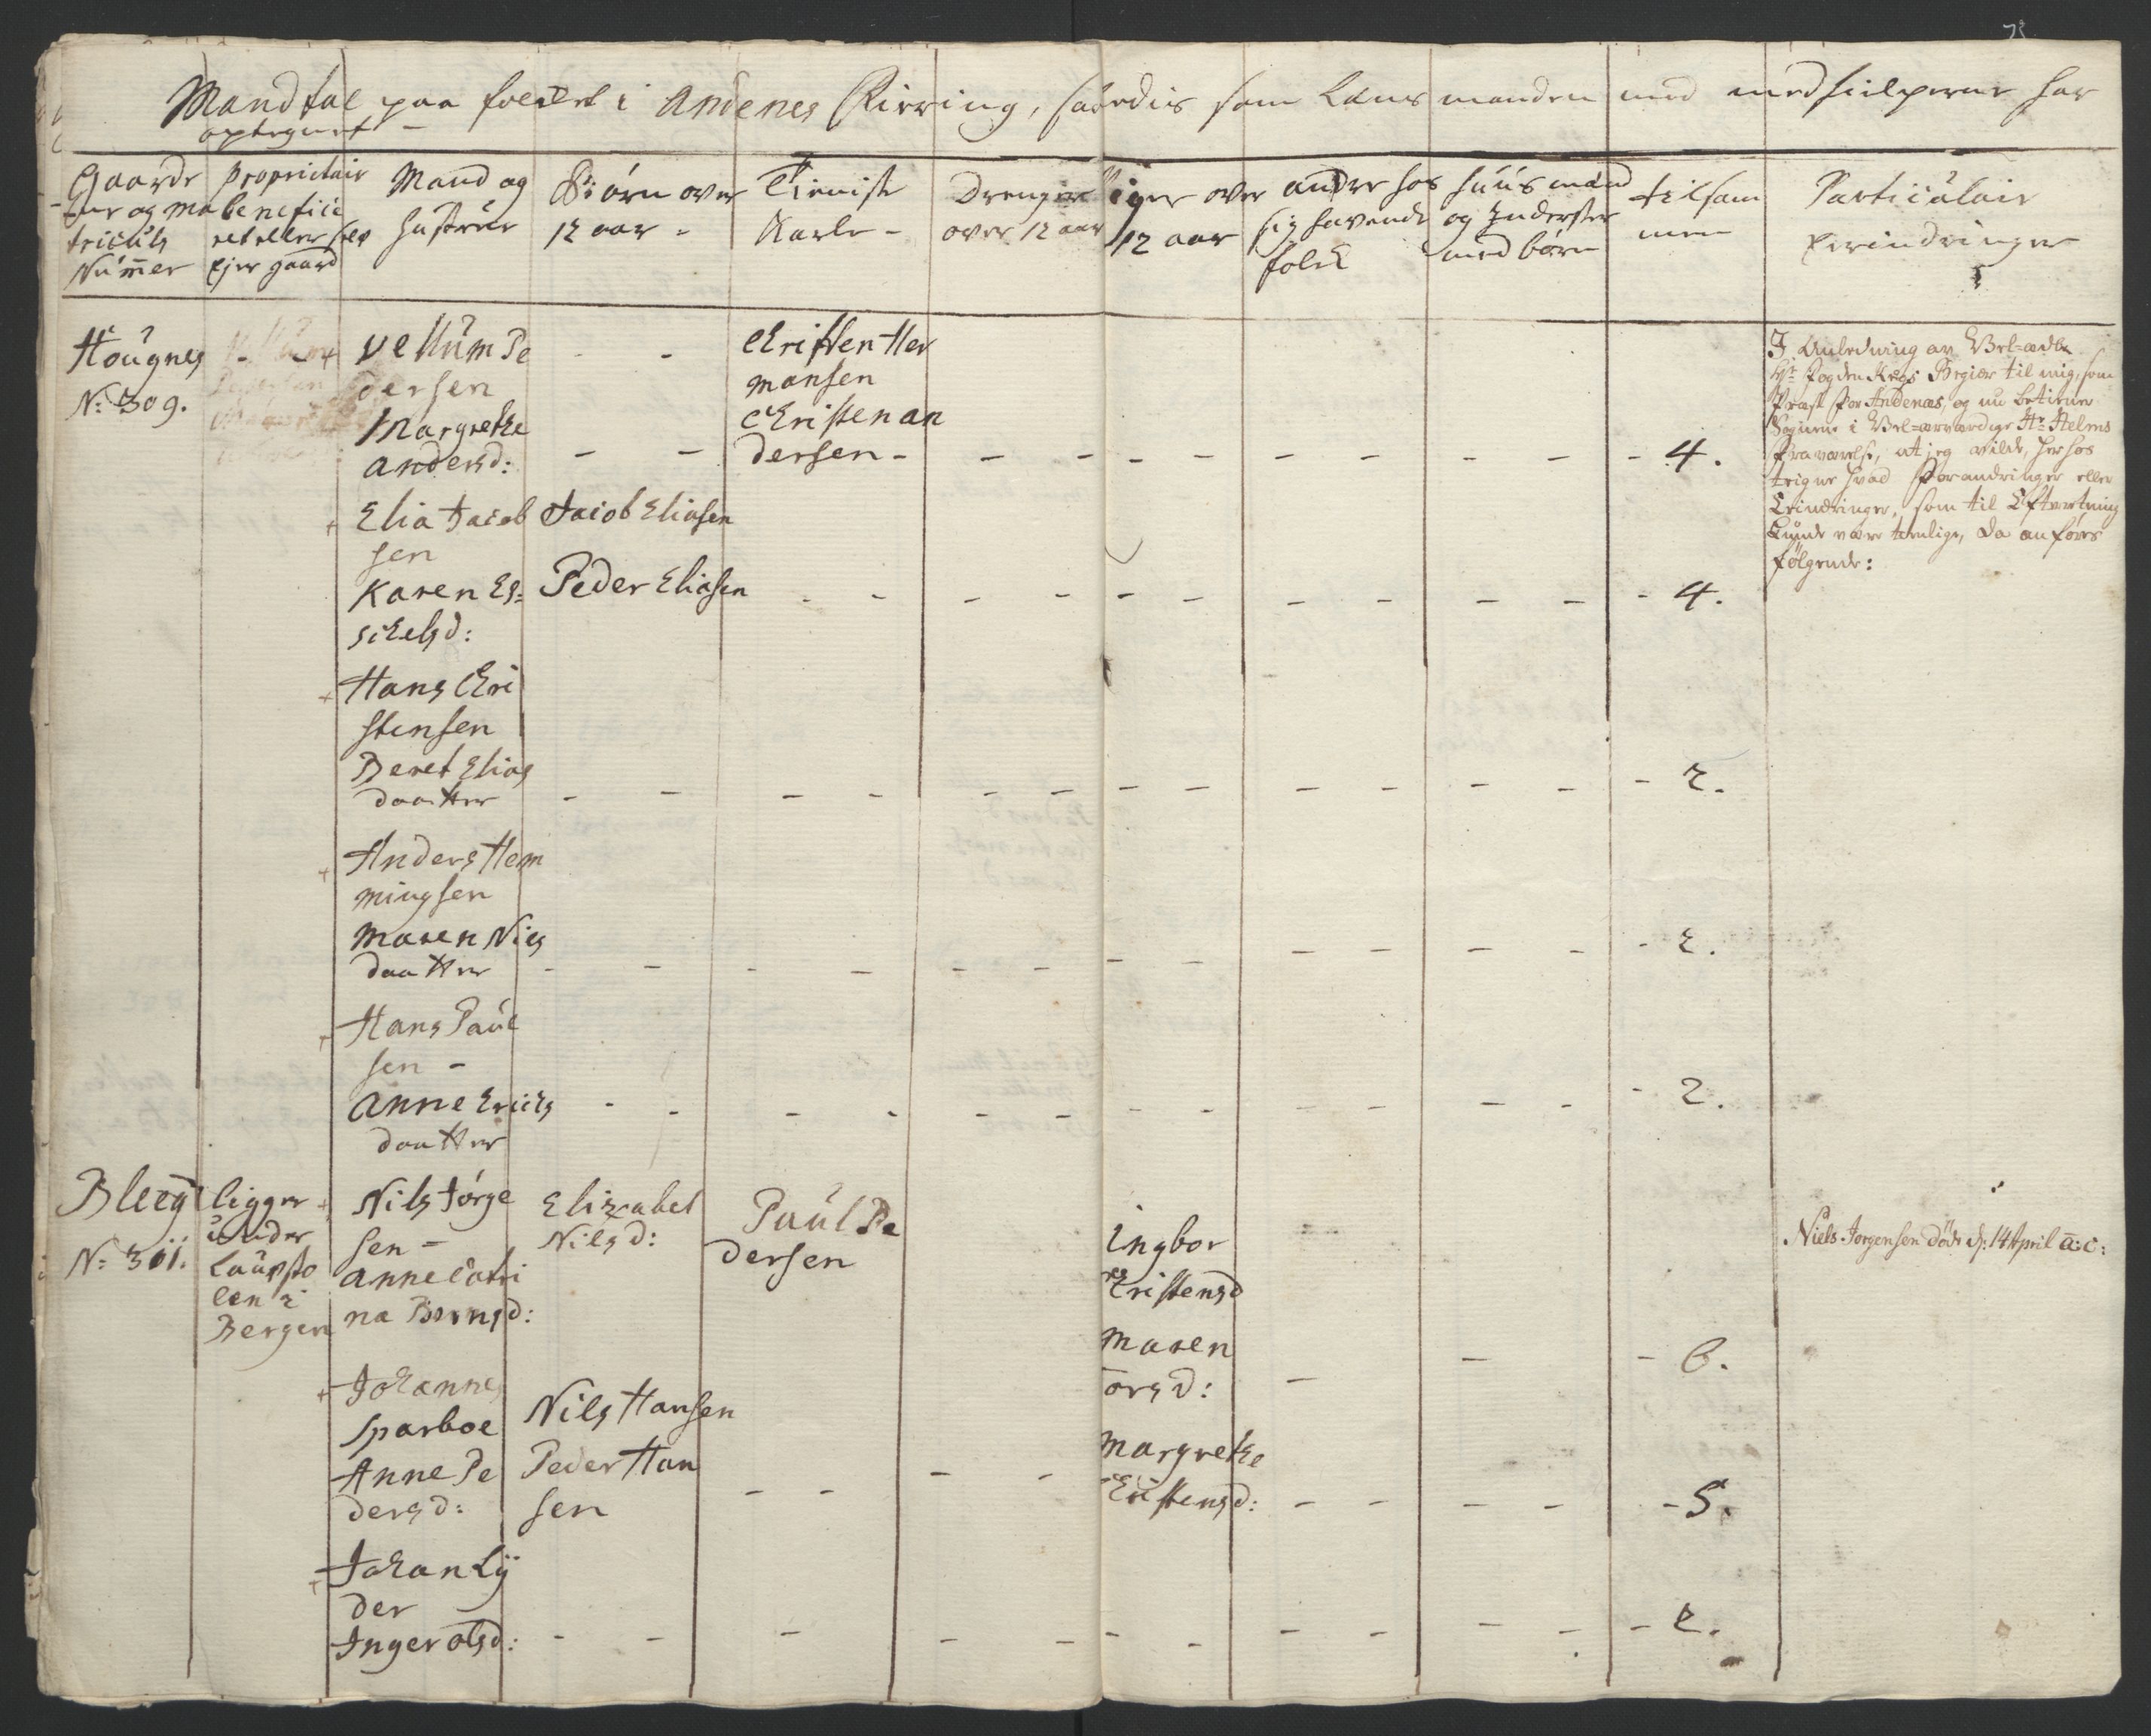 Mandtal paa folket i Andenes Kirring, saaledis som Lensmanden med medhielperne har
optegnet -
Gaarde
Nur og ma
triculs
Nummer
Proprietair
benefici
ret eller sielv
Ejer gaard
Mand og
Hustrue
Børn over
12 aar -
Tieniste
Karle -
Drenger
over 12 aar
Piger over
12 aar
andre hos
sig havende
folck
Huusmænd
og Inderster
med børn
tilsam
men
Particulair
Erindringer
Hougnes
N: 309.
Vellum Pe
dersen
Margrethe
Andersd:
- -
Christen Her
mansen
Christen an
dersen -
- 4.
I Anledning av Vel-ædle
Hr Fogden Krogs Begiær til mig, som
Præst for Andenæs, og nu betiener
Sognene i Vel-ærværdige Hr Helms
Fraværelse, at jeg vilde, her hos
teigne hvad Forandringer eller
Erindringer, som til Efterretning
kunde være tienlige, da anføres
følgende:
+ Elia Jacob
sen
Karen Es=
sikelsd:
Jaiob Eliasen
Peder Eliasen
- 4.
+ Hans Chri
stensen
Beret Elias
daatter
- 2.
+ Anders Hem
mingsen
Maren Niels
daatter
- 2.
+ Hans Paul
sen -
Anne Erichs
daatter
- 2.
Bleeg
N: 311.
ligger
under
Laupsto
len i
Bergen
+ Nils Jørge
sen -
Anne Catri
na Berngd:
Elizabet
Nilsd:
Paul Pe
dersen
Ingbor
Cristensd
Maren
orsd:
- 6.
Niels Jørgensen døde d: 14 April a: c:
+ Johannes
Sparboe
Anne Pe
dersd:
Nils Hansen
Peder Han
sen
Margrethe
Christensd:
- 5.
+ Johan Ly
der
Inger olsd:
- 2.